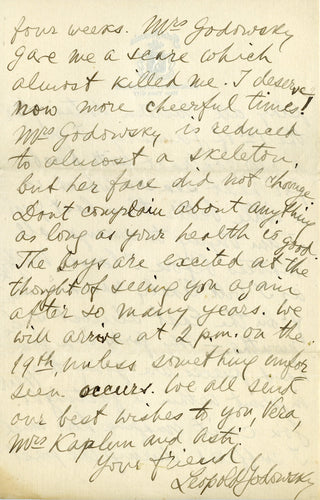 four weeks. Mrs Godowsky
gave me a scare which
almost killed me. I deserve
now more cheerful times!
Mrs Godowsky is reduced
to almost a skeleton,
but her face did not change.
Don't complain about anything
as long as your health is good.
The boys are excited at the
thought of seeing you again
after so many years. We
will arrive at 2 p.m. on the
19th, unless something unfor
seen occurs. We all send
our best wishes to you, Vera,
Mrs Kaplun and Asti.
Your friend
Leopold Godowsky